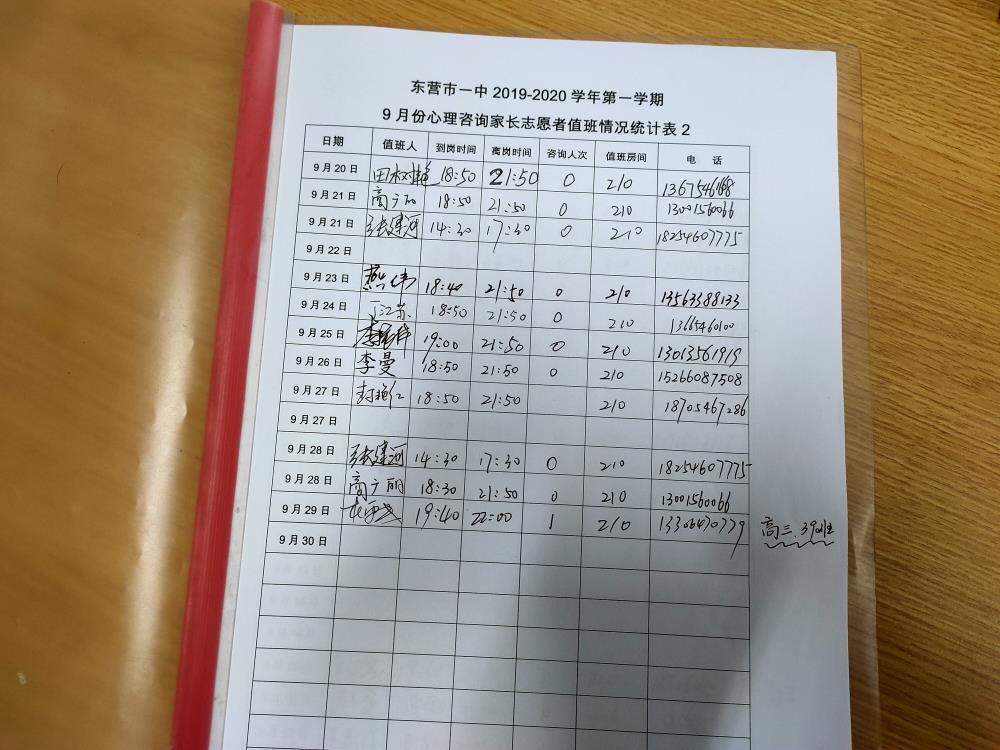 东营市一中 2019-2020 学年第一学期
9 月份心理咨询家长志愿者值班情况统计表 2
日期 值班人 到岗时间 离岗时间 咨询人次 值班房间 电 话
9 月 20 日 田树艳 18:50 21:50 0 210
9 月 21 日 高广丽 18:50 21:50 0 210 13001560066
9 月 21 日 张建河 14:30 17:30 0 210 18254607775
9 月 22 日
9 月 23 日 18:40 21:50 0 210 13563388133
9 月 24 日 丁江苏 18:50 21:50 0 210
9 月 25 日 19:00 21:50 0 210 13013561919
9 月 26 日 李曼 18:50 21:50 0 210 15266087508
9 月 27 日 18:50 21:50 210 18705467286
9 月 27 日
9 月 28 日 张建河 14:30 17:30 0 210 18254607775
9 月 28 日 高广丽 18:30 21:50 0 210 13001560066
9 月 29 日 19:40 22:00 1 210 13306470779 高三.39
9 月 30 日